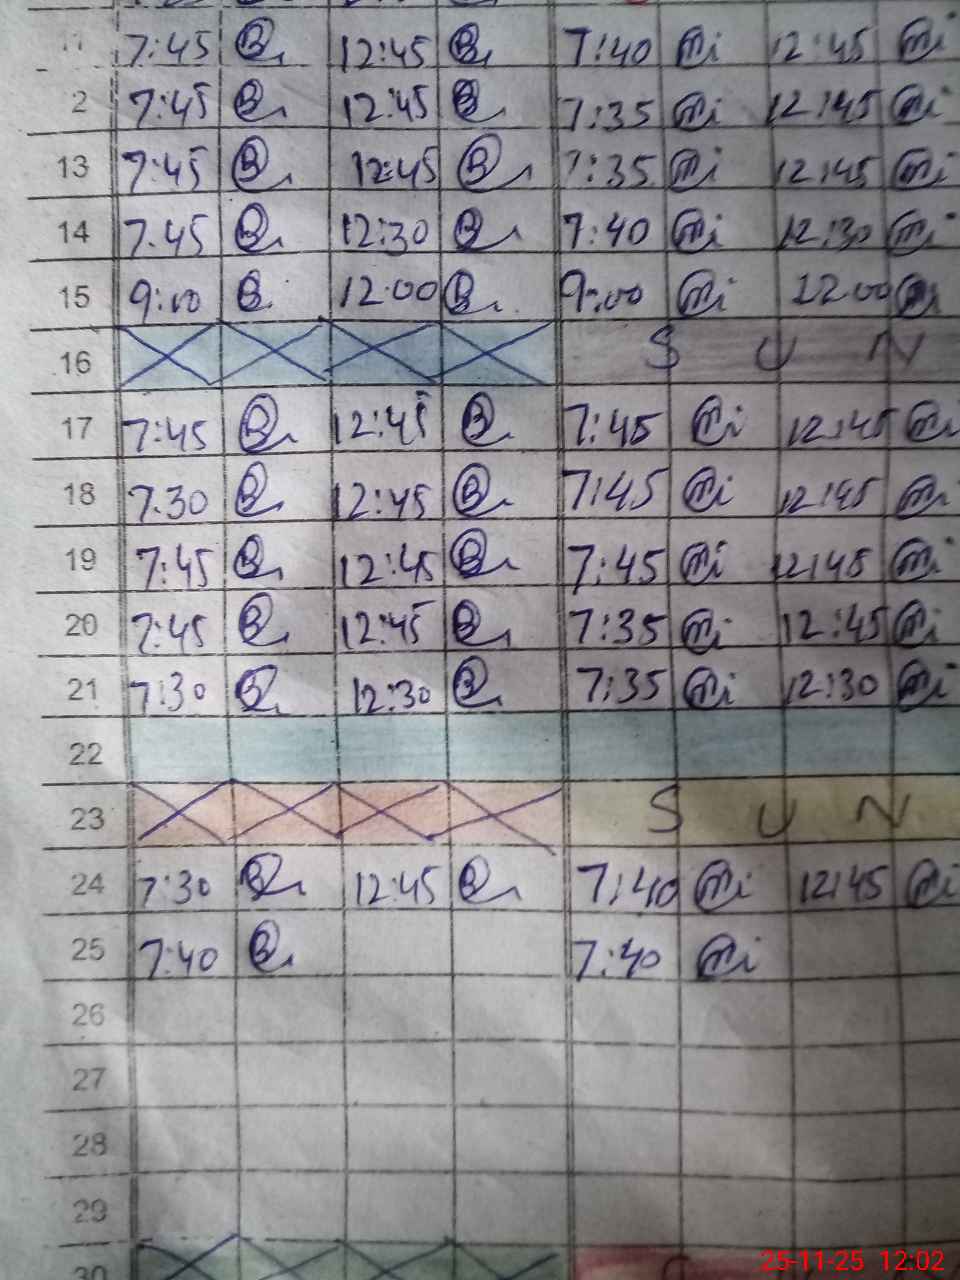 11 7:45 B 12:45 B 7:40 mi 12:45 mi
2 7:45 B 12:45 B 7:35 mi 12:45 mi
13 7:45 B 12:45 B 7:35 mi 12:45 mi
14 7.45 B 12:30 B 7:40 mi 12:30 mi
15 9:00 B 12.00 B 9:00 mi 12.00
16 S U N
17 7:45 B 12:45 B 7:45 mi 12:45 mi
18 7.30 B 12:45 B 7:45 mi 12:45 mi
19 7:45 B 12:45 B 7:45 mi 12:45 mi
20 7:45 B 12:45 B 7:35 mi 12:45 mi
21 7:30 B 12:30 B 7:35 mi 12:30 mi
22
23 S U N
24 7:30 B 12:45 B 7:40 mi 12:45 mi
25 7:40 B 7:40 mi
26
27
28
29
30
25-11-25 12:02